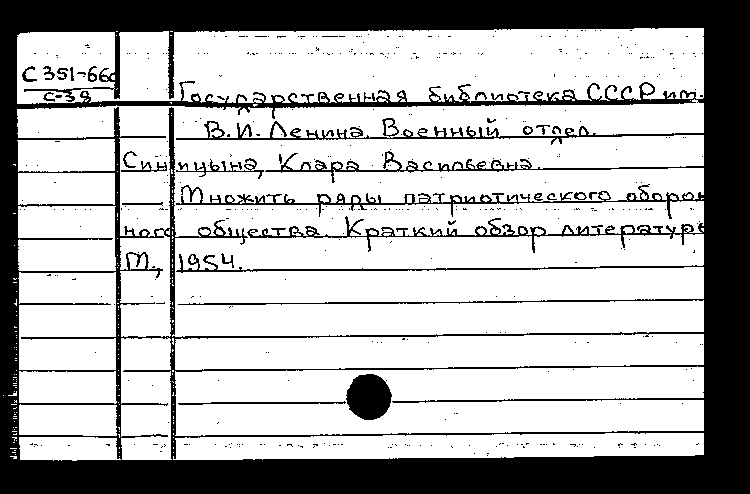 С 351-66
С-38
Государственная библиотека СССР им.
В.И. Ленина. Военный отдел.
Синицына, Клара Васильевна.
Множить ряды патриотического оборон
ного общества. Краткий обзор литературы
М., 1954.